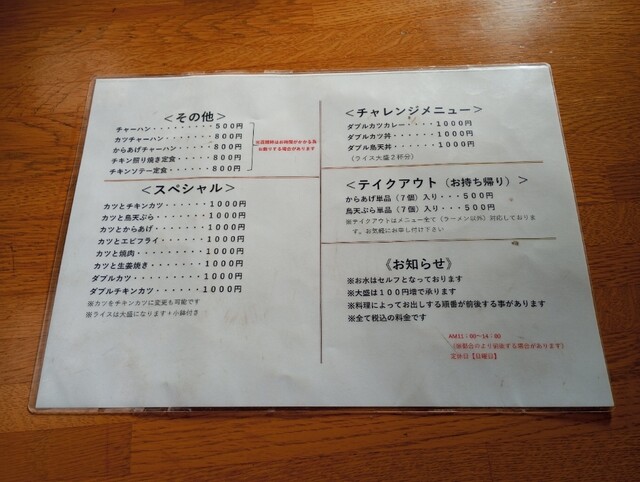 ＜その他＞
チャーハン・・・・・・・・・５００円
カツチャーハン・・・・・・・８００円
からあげチャーハン・・・・・８００円
チキン照り焼き定食・・・・・８００円
チキンソテー定食・・・・・・８００円
お断りする場合があります
＜スペシャル＞
カツとチキンカツ・・・・・・１０００円
カツと鳥天ぷら・・・・・・・１０００円
カツとからあげ・・・・・・・１０００円
カツとエビフライ・・・・・・１０００円
カツと焼肉・・・・・・・・・１０００円
カツと生姜焼き・・・・・・・１０００円
ダブルカツ・・・・・・・・・１０００円
ダブルチキンカツ・・・・・・１０００円
※カツをチキンカツに変更も可能です
※ライスは大盛になります・小鉢付き
＜チャレンジメニュー＞
ダブルカツカレー・・・・１０００円
ダブルカツ丼・・・・・・１０００円
ダブル鳥天丼・・・・・・１０００円
（ライス大盛２杯分）
＜テイクアウト（お持ち帰り）＞
からあげ単品（７個）入り・・・５００円
鳥天ぷら単品（７個）入り・・・５００円
※テイクアウトはメニュー全て（ラーメン以外）対応しておりま
す。お気軽にお申し付け下さい
《お知らせ》
※お水はセルフとなっております
※大盛は１００円増で承ります
※料理によってお出しする順番が前後する事があります
※全て税込の料金です
AM11：00～14：00
定休日【日曜日】